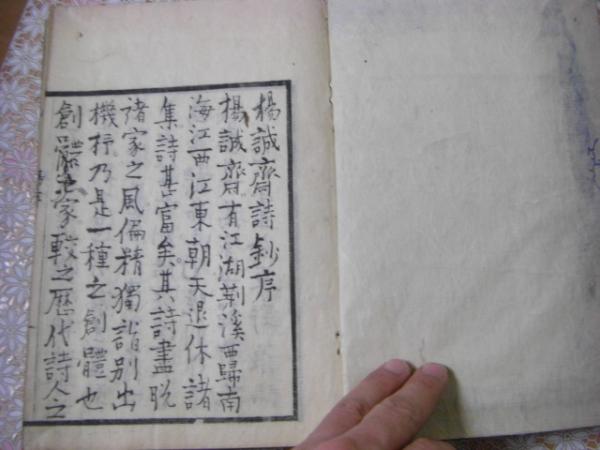 楊誠齋詩鈔序
楊誠齋有江湖荆溪西歸南
海江西江東朝天退休諸
集詩甚富矣其詩盡脫
諸家之風偏精獨詣別出
機杼乃是一種之創體也
創體之家較之歷代詩人之